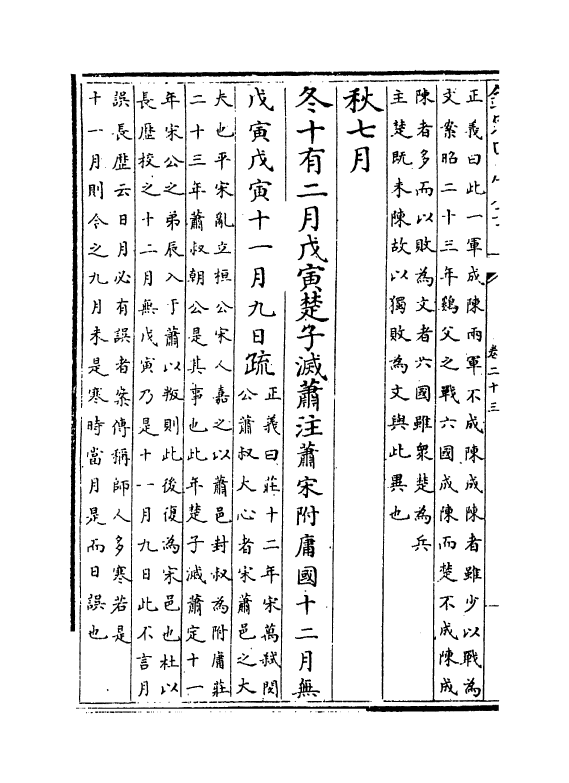 卷二十三
正義曰此一軍成陳兩軍不成陳成陳者雖少以戰為
文案昭二十三年鷄父之戰六國成陳而楚不成陳成
陳者多而以敗為文者六國雖衆楚為兵
主楚既未陳故以獨敗為文與此異也
秋七月
冬十有二月戊寅楚子滅蕭注蕭宋附庸國十二月無
戊寅戊寅十一月九日疏
正義曰莊十二年宋萬弑閔
公蕭叔大心者宋蕭邑之大
夫也平宋亂立桓公宋人嘉之以蕭邑封叔為附庸莊
二十三年蕭叔朝公是其事也此年楚子滅蕭定十一
年宋公之弟辰入于蕭以叛則此後復為宋邑也杜以
長歴校之十二月無戊寅乃是十一月九日此不言月
誤長歴云日月必有誤者案傳稱師人多寒若是
十一月則今之九月未是寒時當月是而日誤也